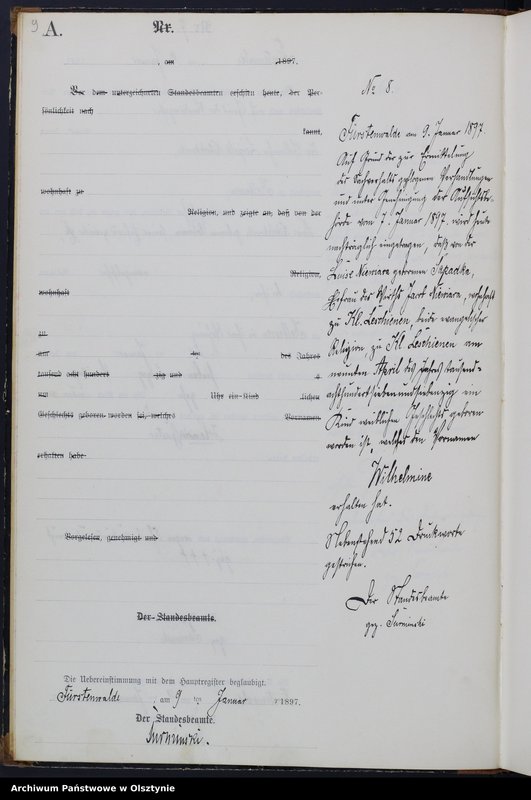 9
A.
Nr.
, am 1897.
Vor dem unterzeichneten Standesbeamten erschien heute, der Per-
sönlichkeit nach
kannt,
wohnhaft zu
Religion, und zeigte an, daß von der
Religion,
wohnhaft
zu
am des Jahres
tausend acht hundert zig und
um Uhr ein Kind lichen
Geschlechts geboren worden sei, welches Vornamen
erhalten habe
Vorgelesen, genehmigt und
Der Standesbeamte.
Die Uebereinstimmung mit dem Hauptregister beglaubigt.
Fürstenwalde, am 9 ten Januar 1897.
Der Standesbeamte.
Surminski.
No 8.
Fürstenwalde am 9. Januar 1897.
Auf Grund der zur Ermittelung
des Sachverhalts gepflogenen Verhandlungen
und unter Genehmigung der Aufsichtsbe-
hörde vom 7. Januar 1897. wird heute
nachträglich eingetragen, daß von der
Luise Niemara geborenen Sapadka,
Ehefrau des Wirths Niemara, wohnhaft
zu Kl. Leschienen, beide evangelischer
Religion, zu Kl. Leschienen am
neunten April des Jahres tausend-
achthundertsiebenundsiebenzig ein
Kind weiblichen Geschlechts geboren
worden ist, welches den Vornamen
Wilhelmine
erhalten hat.
Nebenstehend 52 Druckworte
gestrichen.
Der Standesbeamte
gez. Surminski
Archiwum Państwowe w Olsztynie